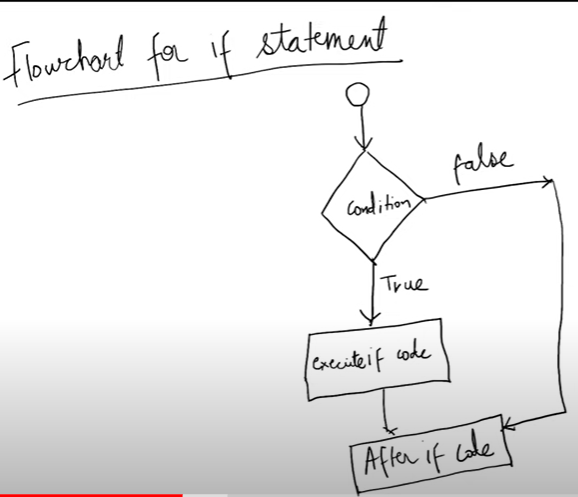 Flowchart for if statement
false
condition
True
execute if code
After if code